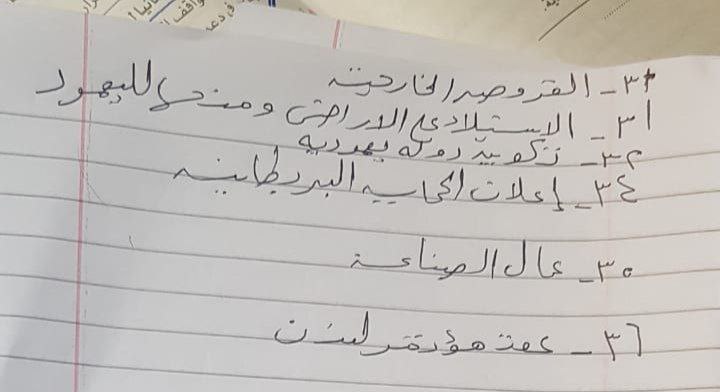 ٣٣ - القروض الخارجية
٣١ - الاستيلاء على الاراضى ومنحها لليهود
٣٢ - تكوين دولة يهودية
٣٤ - إعلان الحماية البريطانية
٣٥ - عمال الصناعة
٣٦ - عقد مؤتمر لندن